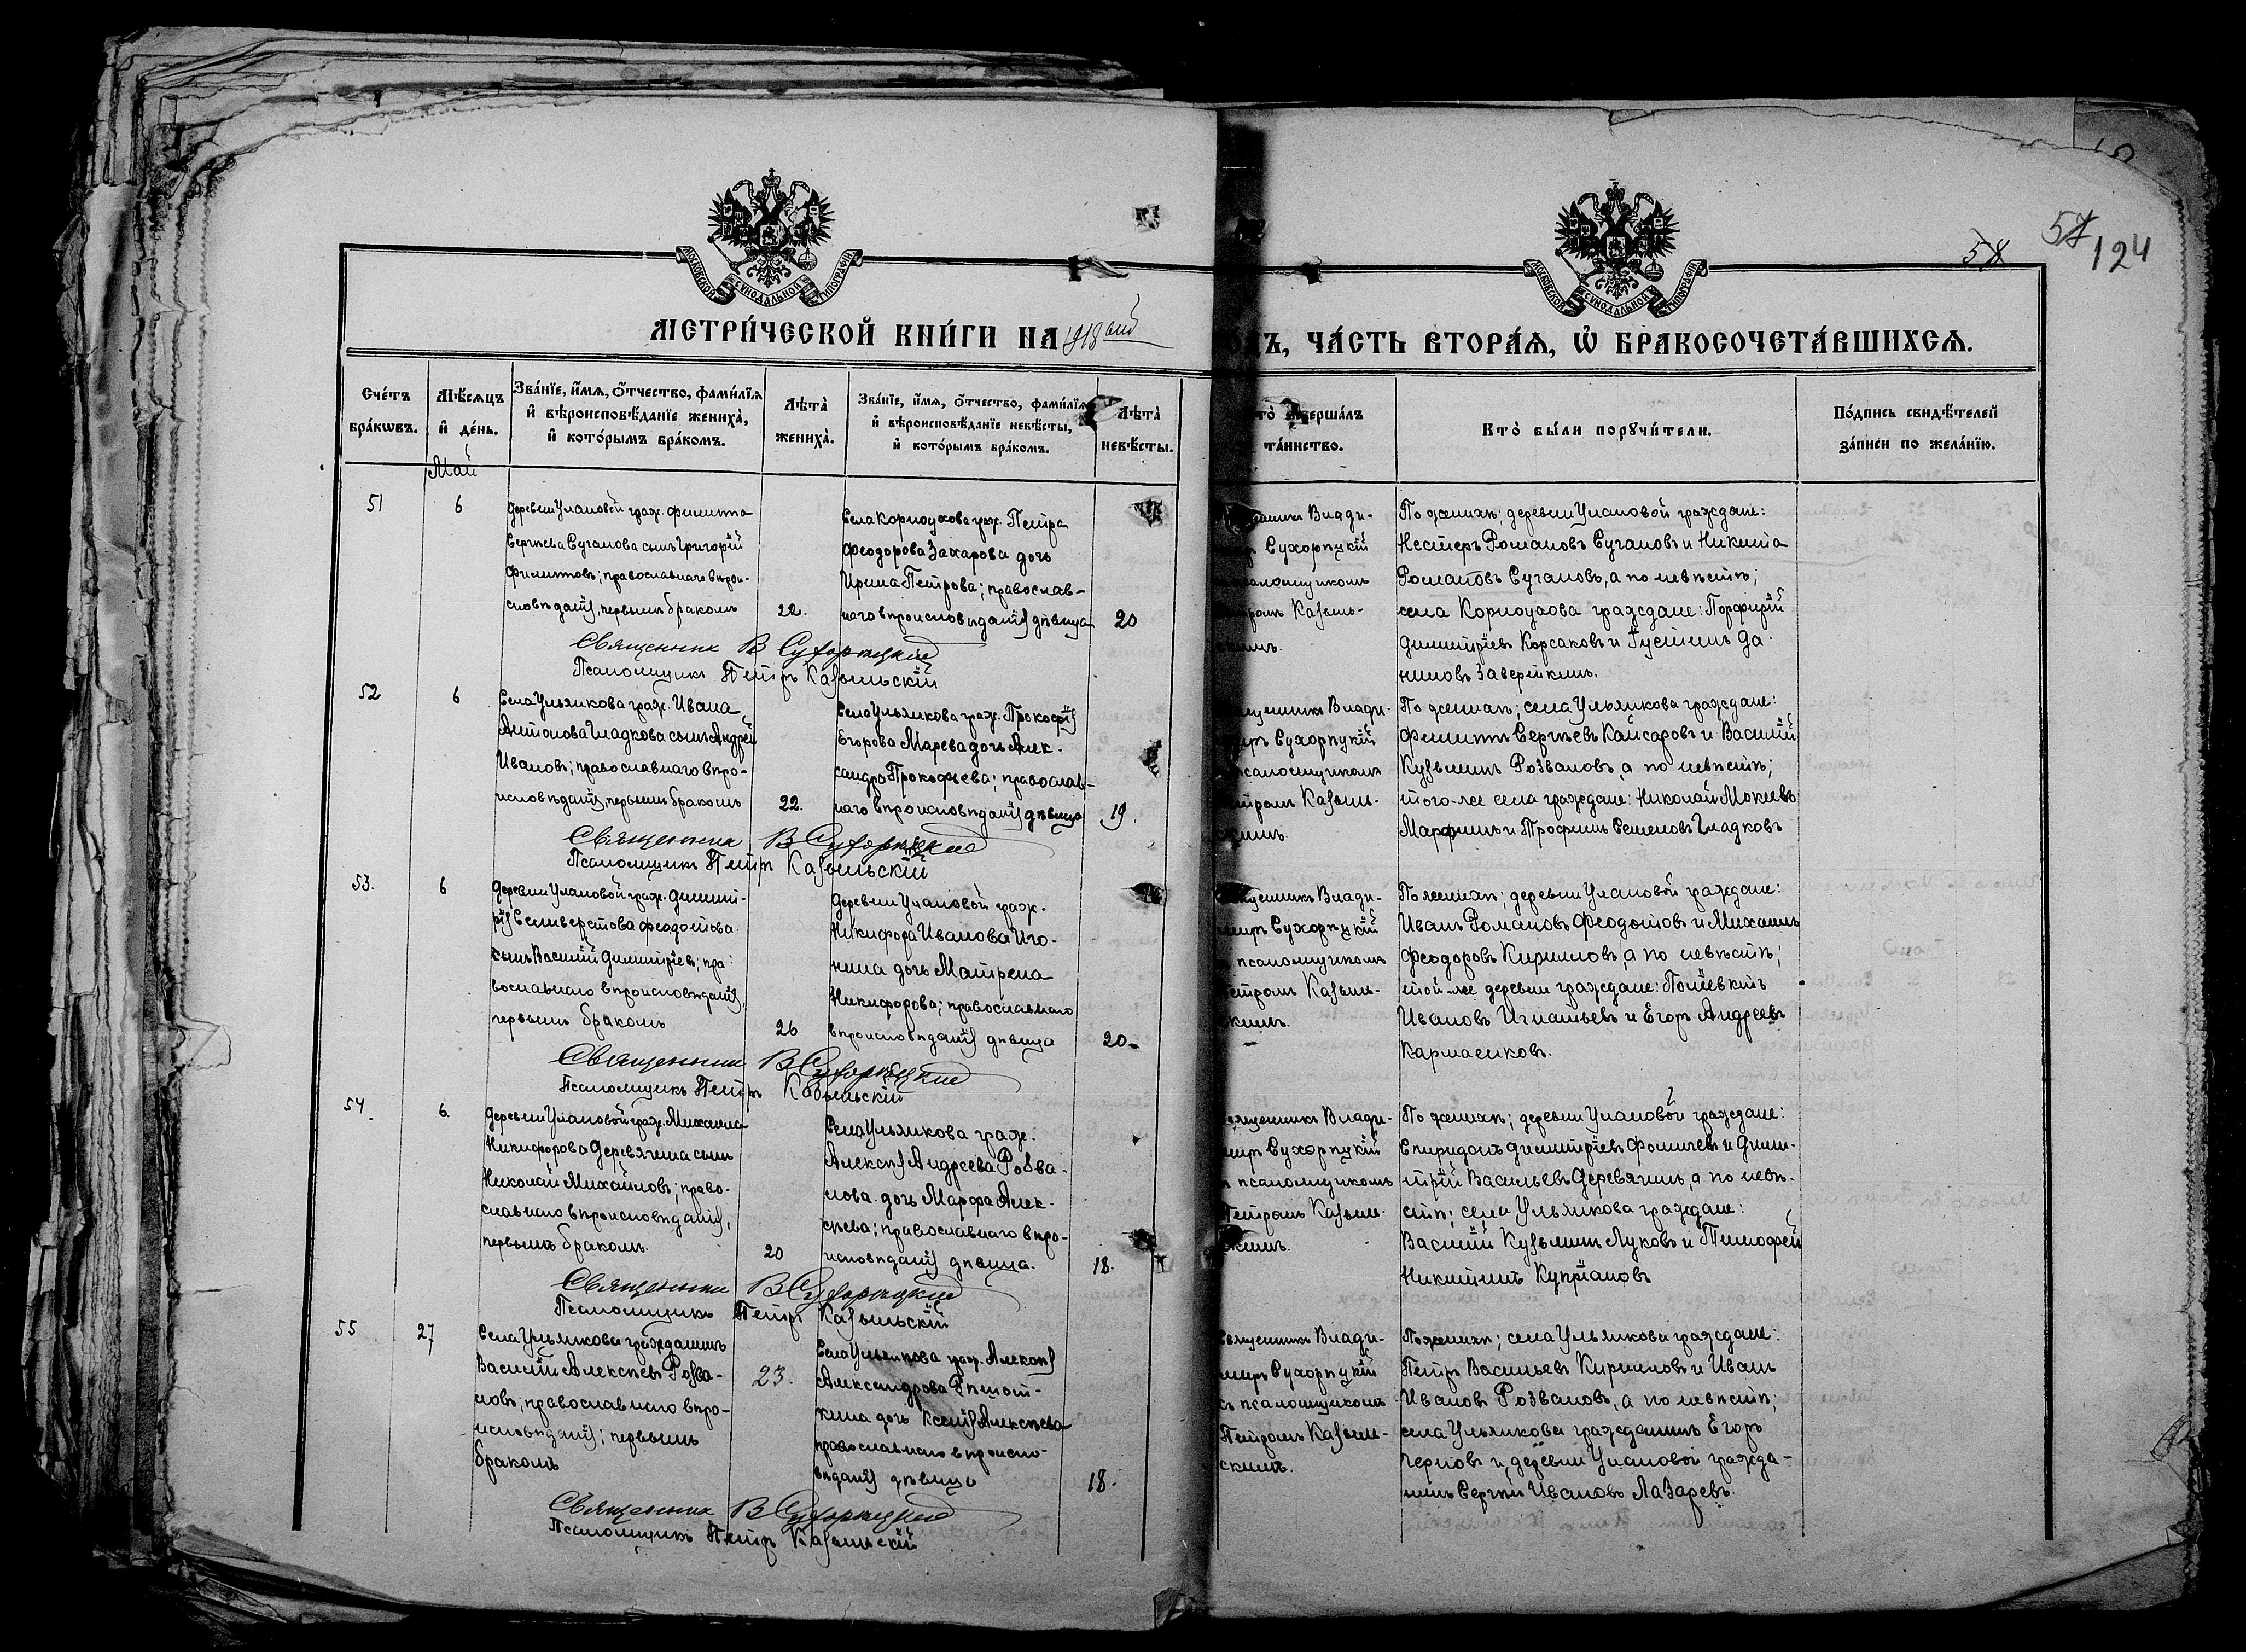 58
57
124
МОСКОВСКОЙ СѴНОДАЛЬНОЙ ТИПОГРАФІИ
МОСКОВСКОЙ СѴНОДАЛЬНОЙ ТИПОГРАФІИ
МЕТРИ́ЧЕСКОЙ КНИ́ГИ НА 1918 ый
ОДЪ, ЧА́СТЬ ВТОРА́Я, Ѡ҆ БРАКОСОЧЕТА́ВШИХСЯ.
Сче́тъ бра́кѡвъ.
Мѣ́сяцъ и҆ де́нь.
Зва́нїе, и҆́мя, ѻ҆́тчество, фами́лїя
и҆ вѣроисповѣ́данїе жениха̀,
и҆ кото́рымъ бра́комъ.
Лѣта̀ жениха̀.
Зва́нїе, и҆́мя, ѻ҆́тчество, фами́лїя
и҆ вѣроисповѣ́данїе невѣ́сты,
и҆ кото́рымъ бра́комъ.
Лѣта̀ невѣ́сты.
то̀ вершáлъ
та́инство.
Кто̀ бы́ли порꙋчи́тели.
По́дпись свидѣ́телей
за́писи по жела́нїю.
Май
51
6
Деревни Улановой граж. Филиппа
Сергѣева Суганова сынъ Григорій
Филипповъ; православнаго вѣрои-
сповѣданія, первымъ бракомъ
22.
Села Корноухова граж. Петра
Феодорова Захарова дочь
Ирина Петрова; православ-
наго вѣроисповѣданія дѣвица
20
Влади-
Сухорѣцкій
псаломщикомъ
Казыль-
скимъ.
По женихѣ; деревни Улановой граждане:
Нестеръ Романовъ Сугановъ и Никита
Романовъ Сугановъ, а по невѣстѣ;
села Корноухова граждане: Порфирій
Димитріевъ Корсаковъ и Густинъ Да-
ниловъ Заверткинъ.
Священникъ В Сухорѣцкій
Псаломщикъ Петръ Казыльскій
52
6
Села Ульянкова граж. Ивана
Антонова Гладкова сынъ Андрей
Ивановъ; православнаго вѣро-
исповѣданія, первымъ бракомъ
22.
Села Ульянкова граж. Прокофія
Егорова Марева дочь Алек-
сандра Прокофьева; православ-
наго вѣроисповѣданія дѣвица
19.
Влади-
миръ Сухорѣцкій
псаломщикомъ
Петромъ Казыль-
скимъ.
По женихѣ; села Ульянкова граждане:
Филиппъ Сергѣевъ Кайсаровъ и Василій
Кузьминъ Розваловъ, а по невѣстѣ;
того-же села граждане: Николай Мокеевъ
Марфинъ и Трофимъ Семеновъ Гладковъ
Священникъ В Сухорѣцкій
Псаломщикъ Петръ Казыльскій
53.
6
Деревни Улановой граж. Димит-
рія Селиверстова Феодотова
сынъ Василій Димитріевъ; пра-
вославнаго вѣроисповѣданія,
первымъ бракомъ
26
Деревни Улановой граж.
Никифора Иванова Иго-
нина дочь Матрена
Никифорова; православнаго
вѣроисповѣданія дѣвица
20
Влади-
миръ Сухорѣцкій
псаломщикомъ
Петромъ Казыль-
скимъ.
По женихѣ; деревни Улановой граждане:
Иванъ Романовъ Феодотовъ и Михаилъ
Феодоровъ Кирилловъ, а по невѣстѣ;
той-же деревни граждане:
Ивановъ Игнатьевъ и Егоръ Андреевъ
Кармасиковъ.
Священникъ В Сухорѣцкій
Псаломщикъ Петръ Казыльскій
54
6.
Деревни Улановой граж. Михаила
Никифорова Деревягина сынъ
Николай Михайловъ; право-
славнаго вѣроисповѣданія,
первымъ бракомъ.
20
Села Ульянкова граж.
Алексѣя Андреева Розва-
лова дочь Марфа Алек-
сѣева; православнаго вѣро-
исповѣданія дѣвица.
18.
Священникъ Влади-
миръ Сухорѣцкій
псаломщикомъ
Петромъ Казыль-
скимъ.
По женихѣ; деревни Улановой граждане:
Спиридонъ Димитріевъ Фомичевъ и Дими-
трій Васильевъ Деревягинъ, а по невѣ-
стѣ; села Ульянкова граждане:
Василій Кузьминъ Луковъ и Тимофей
Никитинъ Купріановъ
Священникъ В Сухорѣцкій
Псаломщикъ Петръ Казыльскій
55
27
Села Ульянкова гражданинъ
Василій Алексѣевъ Розва-
ловъ; православнаго вѣро-
исповѣданія; первымъ
бракомъ
23.
Села Ульянкова граж. Алексѣя
Александрова Рѣшот-
кина дочь Ксенія Алексѣева
православнаго вѣроиспо-
вѣданія дѣвица
18.
Священникъ Влади-
миръ Сухорѣцкій
съ псаломщикомъ
Петромъ Казыль-
скимъ.
По женихѣ; села Ульянкова граждане:
Петръ Васильевъ Кирилловъ и Иванъ
Ивановъ Розваловъ, а по невѣстѣ;
села Ульянкова гражданинъ Егоръ
Черновъ и деревни Улановой гражда-
нинъ Сергѣй Ивановъ Лазаревъ.
Священникъ В Сухорѣцкій
Псаломщикъ Петръ Казыльскій